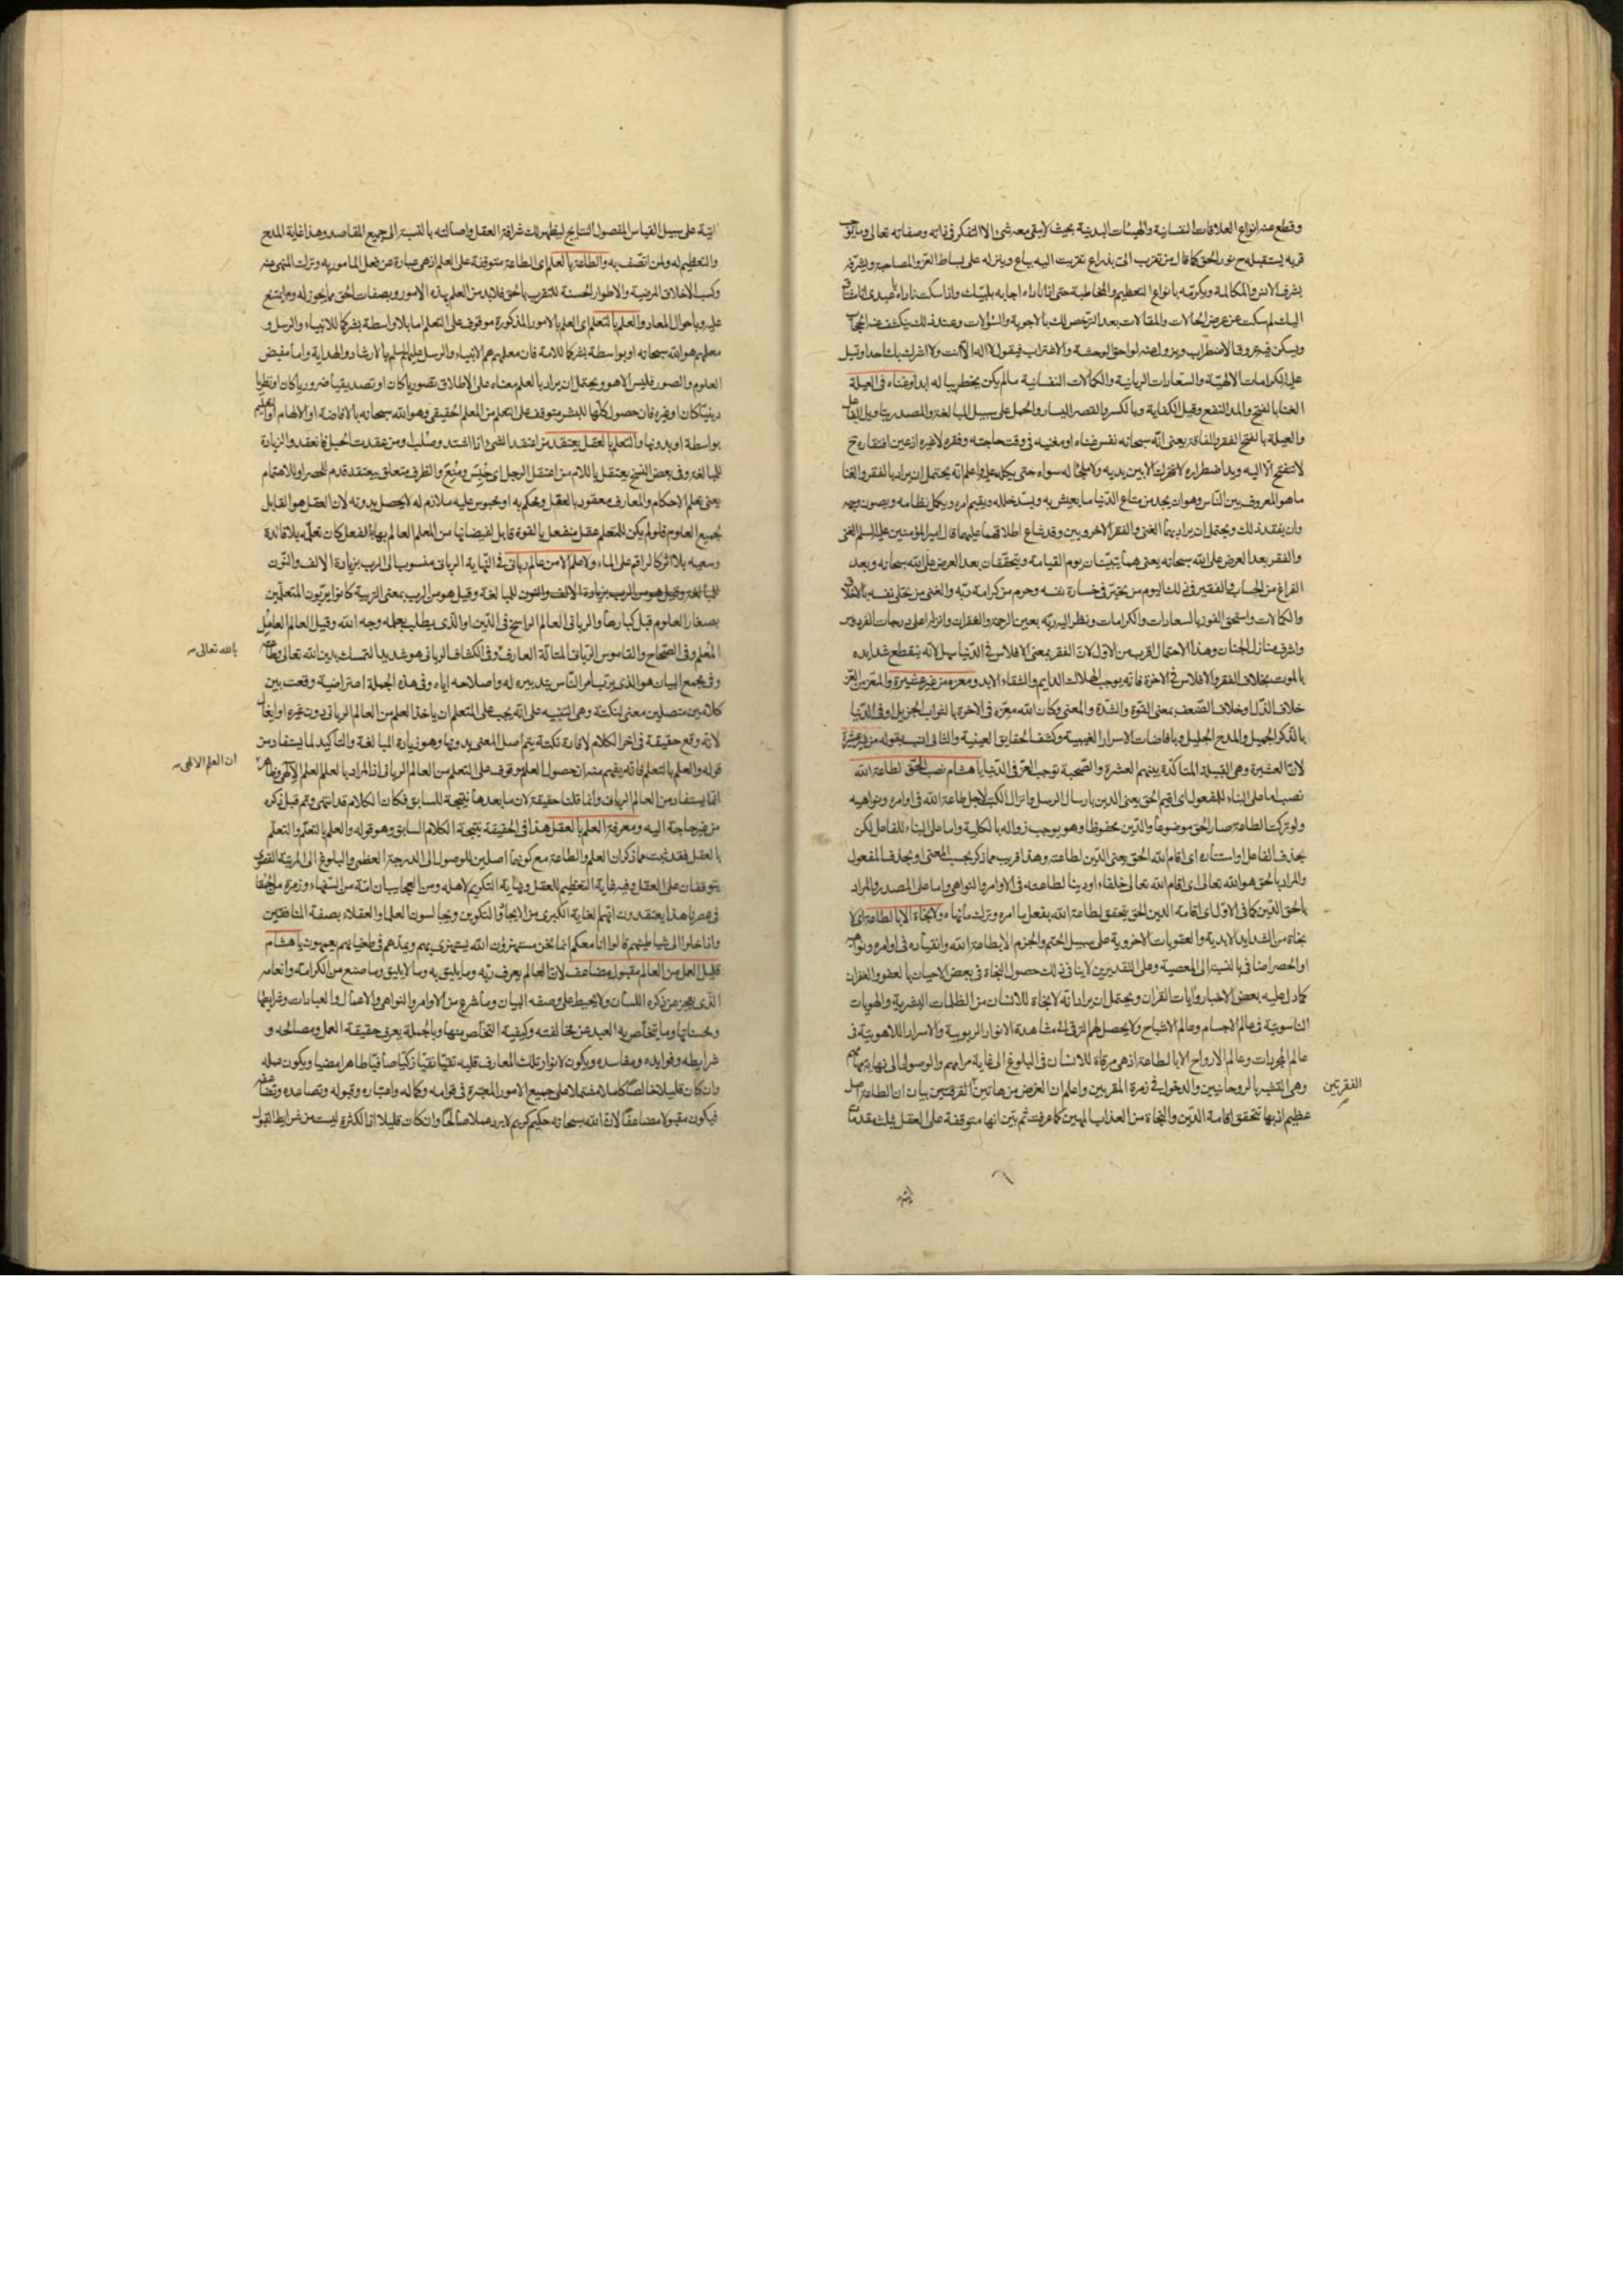 وقطع عنه انواع العلاقات النفسانية والهيئات البدنية بحيث لا يبقى معه شئ الا التفكر فى ذاته وصفاته تعالى
قربه يستقبله ح نور الحق كما قال من تقرب الىّ بذراع تقربت اليه بباع وينزله على بساط العز والمصاحبة ويشرفه
بشرف الانس والمكالمة ويكرمه بانواع التعظيم والمخاطبة حتى اذا ناداه اجابه بلبيك واذا سكت ناداه عبدى انا مشتاق
اليك لم سكت عن عرض الحالات والمقالات بعد الترخص لك بالاجوبة والسؤلات وعند ذلك ينكشف عنه الحجاب
ويسكن فيه عروق الاضطراب ويزول عنه لواحق الوحشة والاغتراب فيقول لا اله الا انت ولا اشرك بك احدا وتبل
عليه الكرامات الالهية والسعادات الربانية والكمالات النفسانية ما لم يكن يخطر بباله ابدا وغناه فى العيلة
الغنا بالفتح والمد النفع وقيل الكفاية وبالكسر والقصر اليسار والحمل على سبيل المبالغة والمصدر بتاويل الفاعل
والعيلة بالفتح الفقر والفاقة يعنى انّه سبحانه نفس غناه او مغنيه فى وقت حاجته وفقره لا غيره اذ عين افتقاره ح
لا تنفتح الا اليه ويد اضطراره لا تتحرك الا بين يديه ولا ملجأ له سواه حتى يتكل عليه واعلم انّه يحتمل ان يراد بالفقر والغنا
ما هو المعروف بين الناس وهو ان يجد من متاع الدّنيا ما يعيش به ويسدّ خلله ويقيم امره ويكمل نظامه ويصون وجهه
وان يفقد ذلك ويحتمل ان يراد بهما الغنى والفقر الاخرويين وقد شاع اطلاقهما عليهما قال امير المؤمنين عليه السلم الغنى
والفقر بعد العرض على الله سبحانه يعنى هما يتبيّنان يوم القيامة ويتحققان بعد العرض على الله سبحانه وبعد
الفراغ من الحساب فالفقير فى ذلك اليوم من تحيّر فى خسارة نفسه وحرم من كرامة ربّه والغنى من تحلى نفسه بالاخلاق
والكمالات واستحق الفوز بالسعادات والكرامات ونظر اليه ربّه بعين الرحمة والغفران وانزله اعلى درجات الفردوس
واشرف منازل الجنان وهذا الاحتمال اقرب من الاول لانّ الفقر بمعنى الافلاس فى الدّنيا سهل لانّه ينقطع شدايده
بالموت بخلاف الفقر والافلاس فى الاخرة فانّه يوجب الهلاك الدايم والشقاء الابد ومعزه من غير عشيرة والمعز من العزّ
خلاف الذّل وخلاف الضّعف بمعنى القوّة والشدّة والمعنى وكان الله معزّه فى الاخرة بالثواب الجزيل او فى الدّنيا
بالذّكر الجميل والمدح الجليل وبافاضات الاسرار الغيبية وكشف الحقايق العينية والثانى انسب بقوله من غير عشيرة
لانّ العشيرة وهى القبيلة المتاكّدة بينهم العشرة والصّحبة توجب العزّ فى الدّنيا يا هشام نصب الحق لطاعة الله
نصب اما على البناء للمفعول اى اقيم الحق يعنى الدين بارسال الرسل وانزال الكتب لاجل طاعة الله فى اوامره ونواهيه
ولو تركت الطاعة صار الحق موضوعا والدّين محفوظا وهو يوجب زواله بالكلية واما على البناء للفاعل لكن
بحذف الفاعل او استتاره اى اقام الله الحق يعنى الدّين لطاعته وهذا قريب مما ذكر بحسب المعنى او بحذف المفعول
والمراد بالحق هو الله تعالى اى اقام الله تعالى خلفاء او دينا لطاعته فى الاوامر والنواهى واما على المصدر والمراد
بالحق الدّين كما فى الاول اى اقامة الدين الحق يتحقق لطاعة الله بفعل ما امره وترك ما نهاه ولا نجاة الا بالطاعة اى لا
نجاة من الشدايد الابدية والعقوبات الاخروية على سبيل الحتم والجزم الا بطاعة الله وانقياده فى اوامره ونواهيه
او الحصر اضافى بالنسبة الى المعصية وعلى التقديرين لا ينافى ذلك حصول النجاة فى بعض الاحيان بالعفو والغفران
كما دل عليه بعض الاخبار وايات القران ويحتمل ان يراد انّه لا نجاة للانسان من الظلمات البشرية والهويات
الناسوتية فى عالم الاجسام وعالم الاشباح ولا يحصل لهم الترقى الى مشاهدة الانوار الربوبية والاسرار اللاهوتية فى
عالم المجردات وعالم الارواح الا بالطاعة اذ هى مرقاة للانسان فى البلوغ الى غاية مرامهم والوصول الى نهاية
وهى التشبه بالروحانيين والدخول فى زمرة المقربين واعلم ان الغرض من هاتين الفقرتين بيان ان الطاعة اصل
عظيم اذ بها تتحقق اقامة الدّين والنجاة من العذاب المهين كما عرفت ثم بيّن انها متوقفة على العقل بثلث مقدمات
الفقرتين
اتية على سبيل القياس المفصول النتايج ليظهر لك شرافة العقل واصالته بالنسبة الى جميع المقاصد وهذا غاية المدح
والتعظيم له ولمن اتصف به والطاعة بالعلم اى الطاعة متوقفة على العلم اذ هى عبارة عن فعل المامور به وترك المنهى عنه
وكسب الاخلاق المرضية والاطوار الحسنة للتقرب بالحق فلا بد من العلم بهذه الامور وبصفات الحق مما يجوز له وما يمتنع
عليه وباحوال المعاد والعلم بالتعلم اى العلم بالامور المذكورة موقوف على التعلم اما بلا واسطة بشر كما للانبياء والرسل و
معلمهم هو الله سبحانه او بواسطة بشر كما للامة فان معلمهم هم الانبياء والرسل عليهم السلم بالارشاد والهداية واما مفيض
العلوم والصور فليس الا هو ويحتمل ان يراد بالعلم معناه على الاطلاق تصوريا كان او تصديقيا ضروريا كان او نظريا
دينيّا كان او غيره فان حصول كلّها للبشر متوقف على التعلم من المعلم الحقيقى وهو الله سبحانه بالافاضة او الالهام او التعليم
بواسطة او بدونها والتعلم بالعقل يعتقد من اعتقد الشئ اذا اشتد وصلب او من عقدت الحبل فانعقد والزيادة
للمبالغة وفى بعض النسخ يعتقل باللام من اعتقل الرجل اى حُبِس ومُنِع والظرف متعلق بيعتقد قدم للحصر او للاهتمام
يعنى تعلم الاحكام والمعارف معقود بالعقل ومحكم به او محبوس عليه ملازم له لا يحصل بدونه لان العقل هو القابل
لجميع العلوم فلو لم يكن للمتعلم عقل منفعل بالقوة قابل لفيضانها من المعلم العالم بها بالفعل كان تعلّمه بلا فائدة
وسعيه بلا اثر كالراقم على الماء ولا علم الا من عالم ربانى فى النّهاية الربانى منسوب الى الرب بزيادة الالف والنّون
للمبالغة وقيل هو من الرب بمعنى التربية كانوا يربّون المتعلّمين
بصغار العلوم قبل كبارها والربانى العالم الراسخ فى الدّين او الّذى يطلب بعلمه وجه الله وقيل العالم العامل
المُعلم وفى الصّحاح والقاموس الربّانى المتالّه العارف وفى الكشاف الربانى هو شديد التمسك بدين الله تعالى وطاعته
بالله تعالى
وفى مجمع البيان هو الذى يربّ امر الناس بتدبيره له واصلاحه اياه وفى هذه الجملة اعتراضية وقعت بين
كلامين متصلين معنى لنكتة وهى التنبيه على انّه يجب على المتعلم ان ياخذ العلم من العالم الربانى دون غيره او ايغال
لانّه وقع حقيقة فى اخر الكلام لافادة نكتة يتم اصل المعنى بدونها وهو زيادة المبالغة والتأكيد لما يستفاد من
قوله والعلم بالتعلم فانّه يفهم منه ان حصول العلم موقوف على التعلم من العالم الربانى اذ المراد بالعلم العلم الالهى
ان العلم الالهى
انما يستفاد من العالم الربانى وانما قلنا حقيقة لان ما بعدها نتيجة للسابق فكان الكلام قد انتهى وتم قبل ذكره
من غير حاجة اليه ومعرفة العلم بالعقل هذا فى الحقيقة نتيجة الكلام السابق وهو قوله والعلم بالتعلم والتعلّم
بالعقل فقد ثبت مما ذكر ان العلم والطاعة مع كونهما اصلين للوصول الى الدرجة العظمى والبلوغ الى المرتبة القصوى
يتوقفان على العقل وفيه غاية التعظيم للعقل ونهاية التكريم لاهله ومن العجايب ان امّة من السّفهاء وزمرة من
فى عصرنا هذا يعتقدون انّهم لغاية الكبرى من الايجاد والتكوين ويجالسون العلماء والعقلاء بصفة المنافقين
واذا خلوا الى شياطينهم قالوا انا معكم انما نحن مستهزؤن الله يستهزئ بهم ويمدّهم فى طغيانهم يعمهون يا هشام
قليل العمل من العالم مقبول مضاعف لانّ العالم يعرف ربّه وما يليق به وما لا يليق وما صنع من الكرامة وانعامه
الذى يعجز عن ذكره اللسان ولا يحيط على وصفه البيان وما شرع من الاوامر والنواهى والاعمال والعبادات
ومحسناتها وما يتخلّص به العبد عن مخالفته وكيفية التخلّص منها وبالجملة يعرف حقيقة العمل ومصالحه و
شرايطه وفوايده ومفاسده ويكون لانوار تلك المعارف قلبه تقيّا نقيّا زكيّا صافيّا طاهرا مضيا ويكون عمله
وان كان قليلا خالصا كاملا مشتملا على جميع الامور المعتبرة فى قوامه وكماله واعتباره وقبوله وتصاعده
فيكون مقبولا مضاعفا لانّ الله سبحانه حكيم كريم لا يرد عملا صالحا وان كان قليلا اذ الكثرة ليست من شرايط القبول